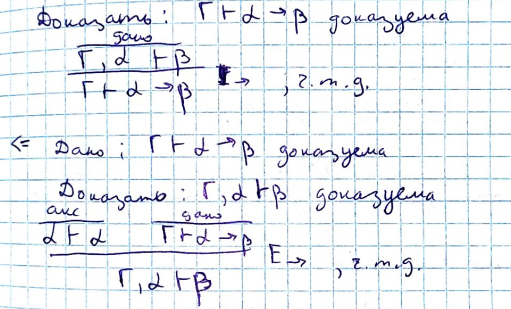 Доказать: Γ ⊢ α → β доказуема
дано
Γ, α ⊢ β
Γ ⊢ α → β I→ , ч.т.д.
<= Дано: Γ ⊢ α → β доказуема
Доказать: Γ, α ⊢ β доказуема
акс дано
α ⊢ α Γ ⊢ α → β
Γ, α ⊢ β E→ , ч.т.д.